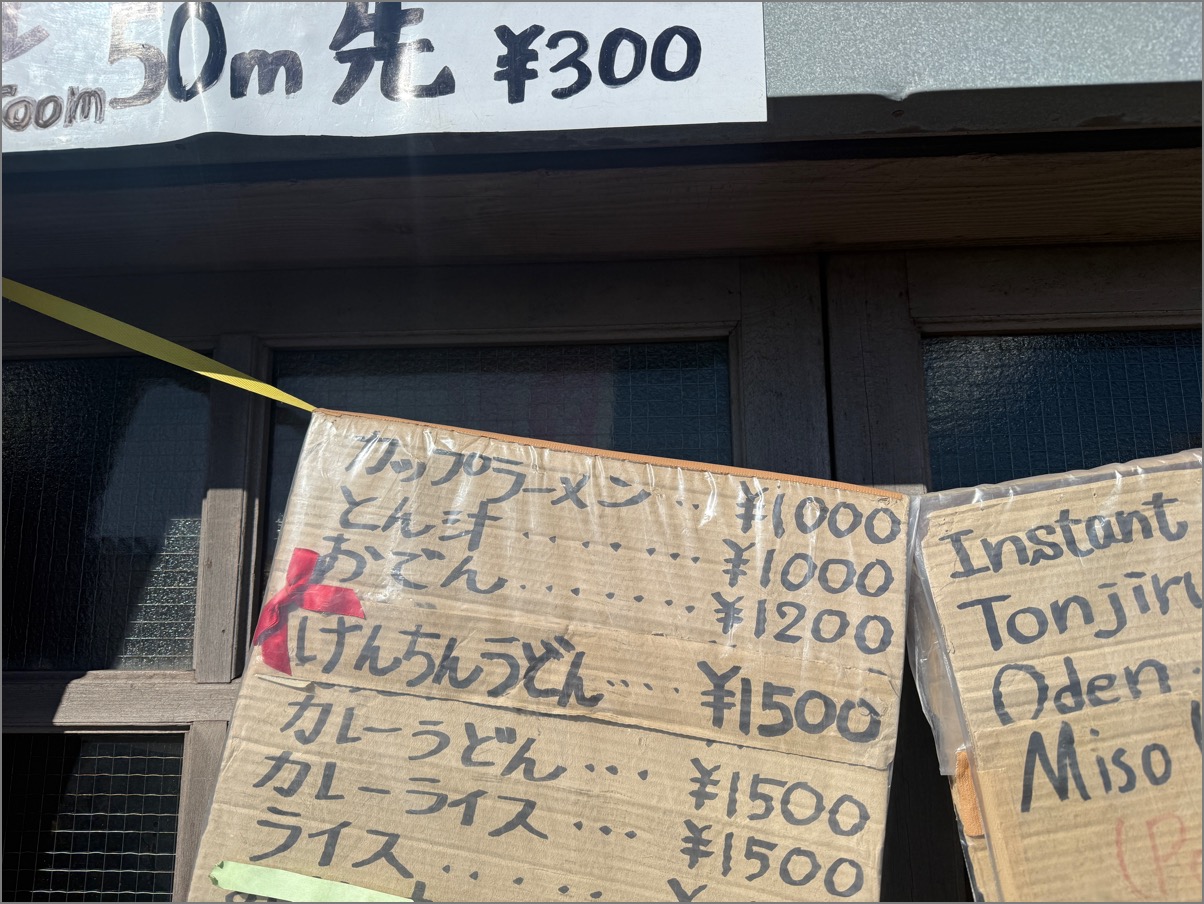 room 50m 先 ¥300
カップラーメン‥ ¥1000
とん汁・・・・・・・ ¥1000
おでん・・・・・・・・ ¥1200
けんちんうどん・・・・ ¥1500
カレーうどん・・・ ¥1500
カレーライス・・・ ¥1500
ライス・・・・・ ¥
Instant
Tonjiru
Oden
Miso